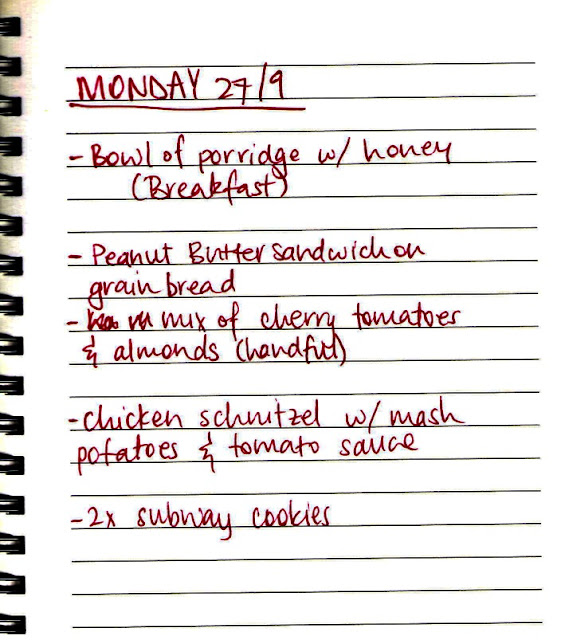 MONDAY 27/9
- Bowl of porridge w/ honey
(Breakfast)
- Peanut Butter sandwich on
grain bread
- mix of cherry tomatoes
& almonds (handful)
- chicken schnitzel w/ mash
potatoes & tomato sauce
- 2x subway cookies